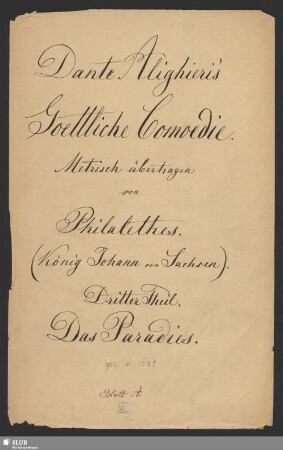 Dante Alighieri's
Goettliche Comoedie.
Metrisch übertragen
von
Philalethes.
(König Johann von Sachsen).
Dritter Theil.
Das Paradies.
Blatt A.
SLUB